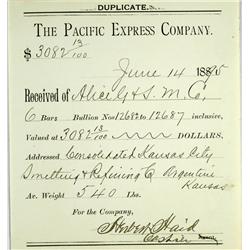 DUPLICATE.
THE PACIFIC EXPRESS COMPANY.
$ 3082 13/100
June 14 1895
Received of Alice G & S. M. Co
6 Bars Bullion Nos 12682 to 12687 inclusive,
Valued at 3082 13/100 DOLLARS.
Addressed Consolidated Kansas City
Smelting & Refining Co Argentine
Kansas
Av. Weight 540 Lbs.
For the Company,